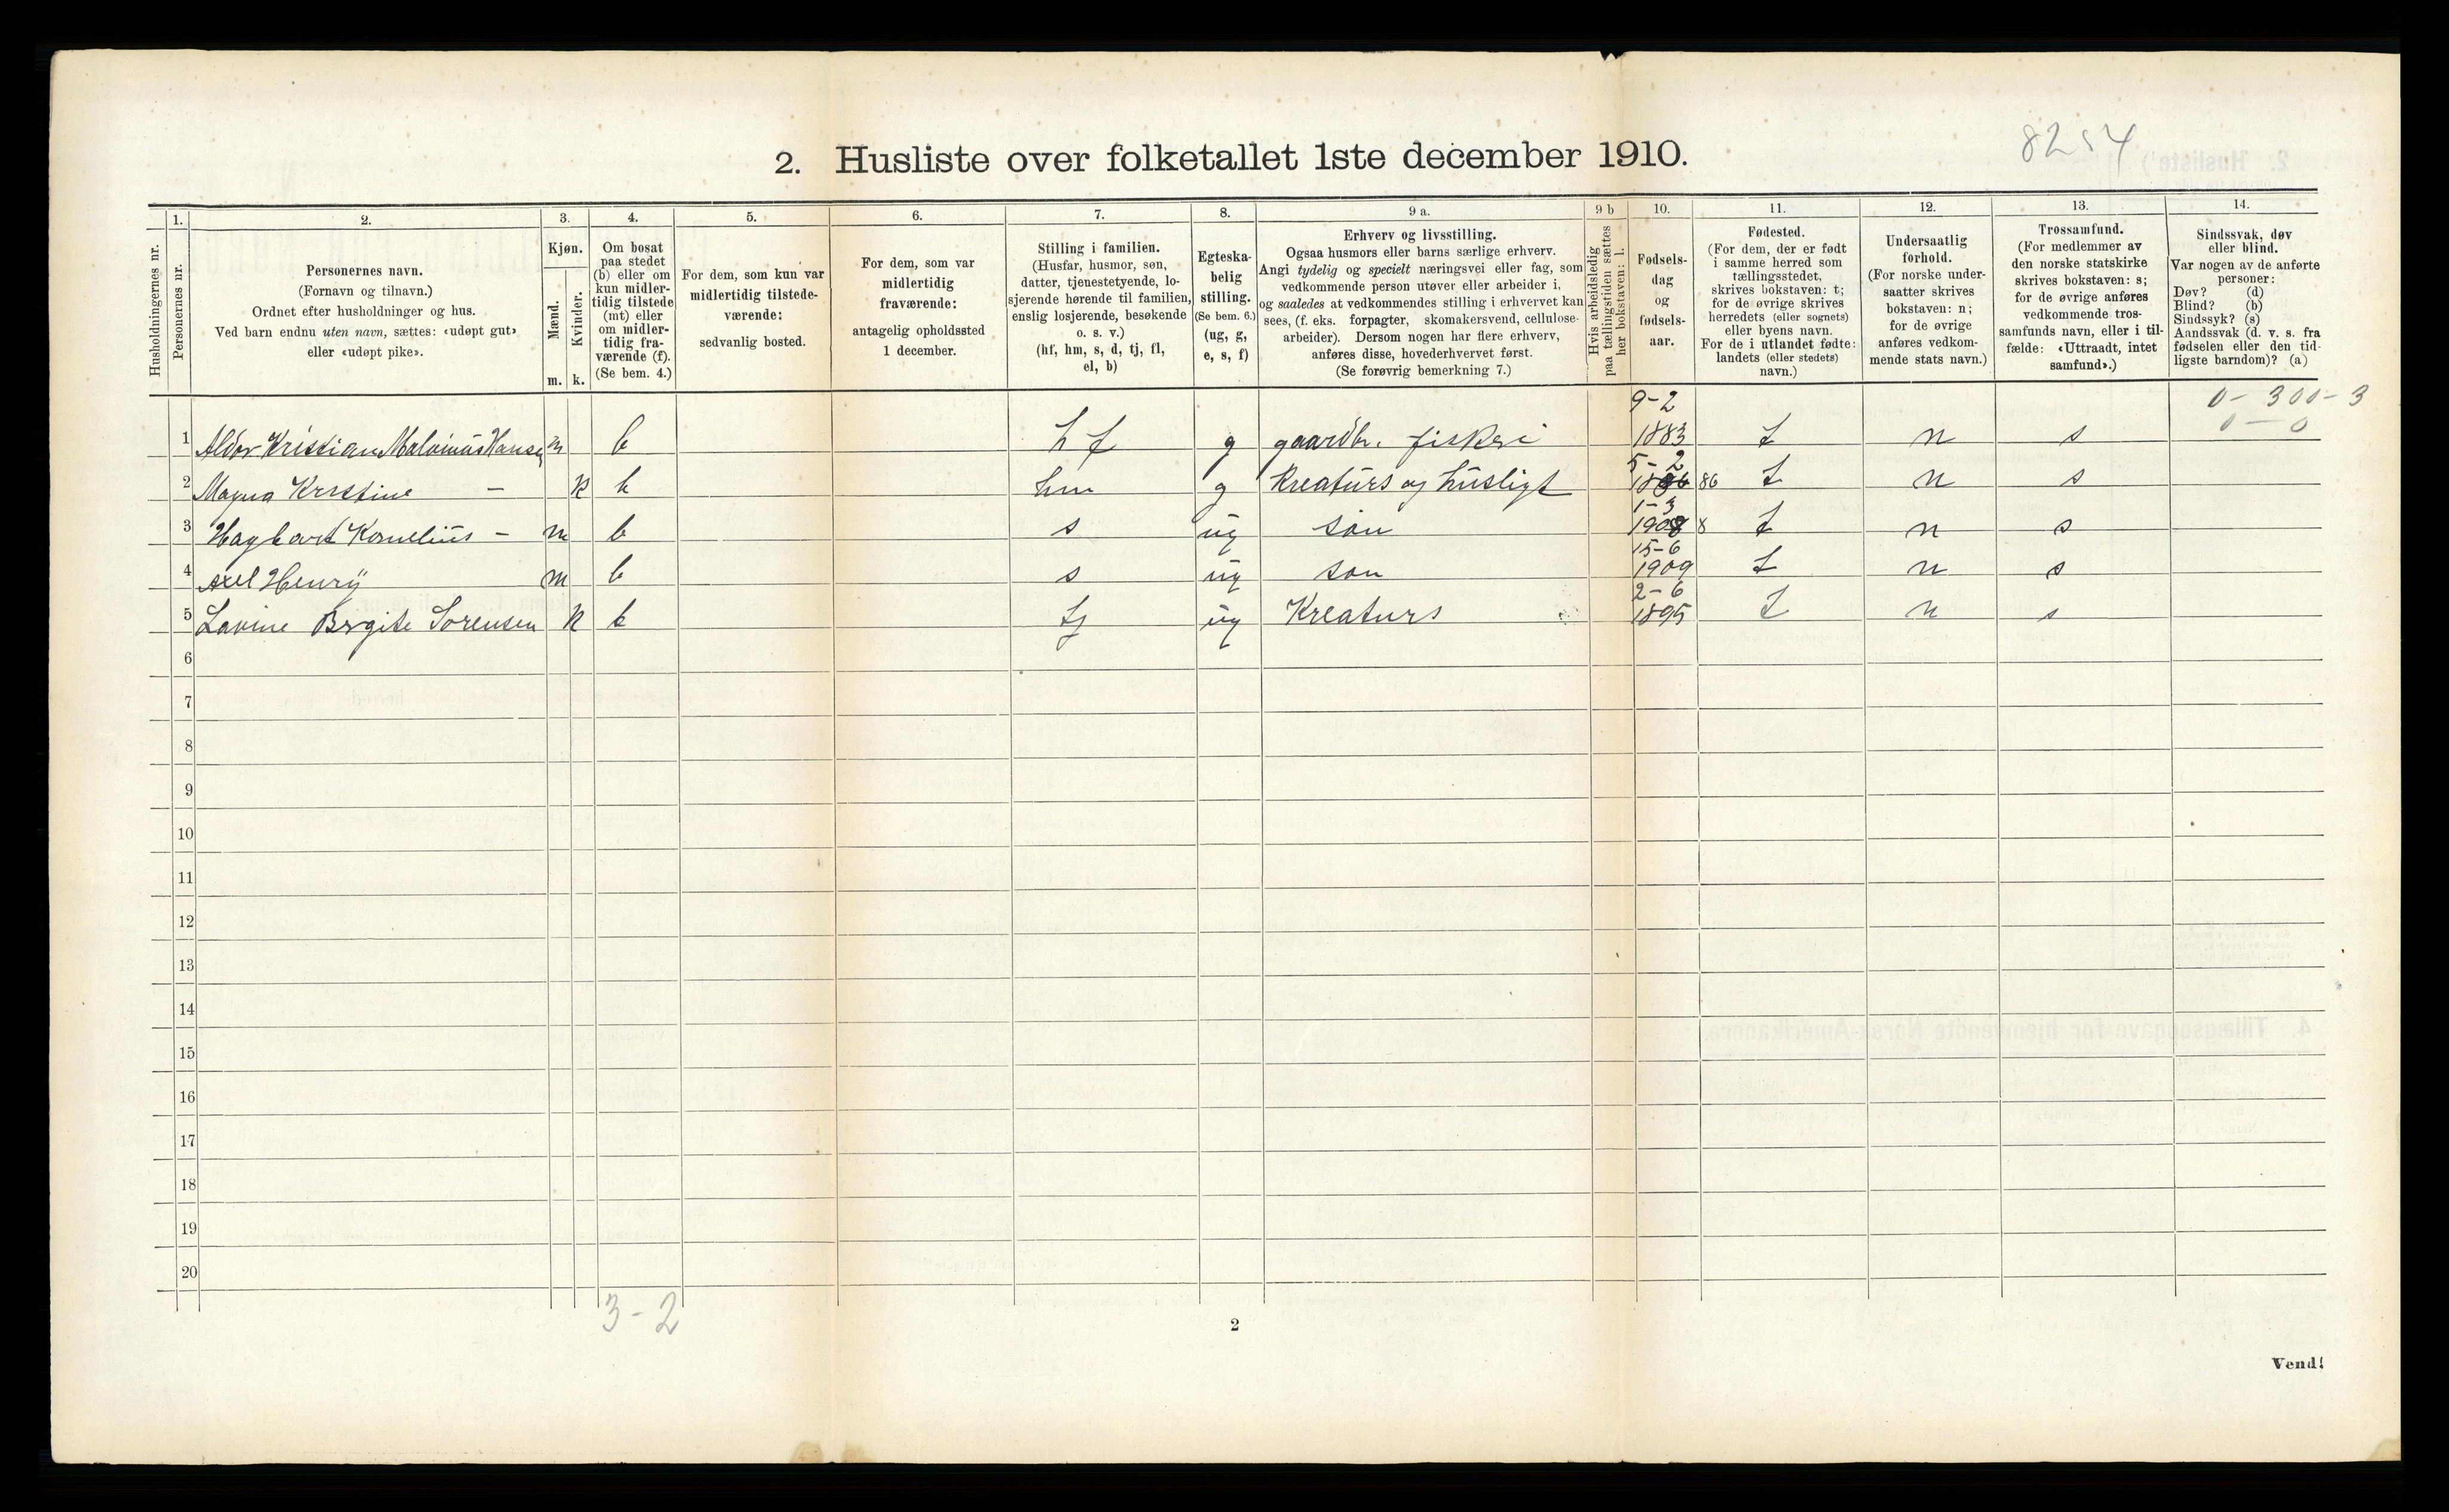 8254
2. Husliste over folketallet 1ste december 1910.
Husholdningernes nr.
1.
Personernes nr.
2.
Personernes navn.
(Fornavn og tilnavn.)
Ordnet efter husholdninger og hus.
Ved barn endnu uten navn, sættes: «udøpt gut»
eller «udøpt pike».
3.
Kjøn.
Mænd.
Kvinder.
m. k.
4.
Om bosat
paa stedet
(b) eller om
kun midler-
tidig tilstede
(mt) eller
om midler-
tidig fra-
værende (f).
(Se bem. 4.)
5.
For dem, som kun var
midlertidig tilstede-
værende:
sedvanlig bosted.
6.
For dem, som var
midlertidig
fraværende:
antagelig opholdssted
1 december.
7.
Stilling i familien.
(Husfar, husmor, søn,
datter, tjenestetyende, lo-
sjerende hørende til familien,
enslig losjerende, besøkende
o. s. v.)
(hf, hm, s, d, tj, fl,
el, b)
8.
Egteska-
belig
stilling.
(Se bem. 6.)
(ug, g,
e, s, f)
9 a.
Erhverv og livsstilling.
Ogsaa husmors eller barns særlige erhverv.
Angi tydelig og specielt næringsvei eller fag, som
vedkommende person utøver eller arbeider i,
og saaledes at vedkommendes stilling i erhvervet kan
sees, (f. eks. forpagter, skomakersvend, cellulose-
arbeider). Dersom nogen har flere erhverv,
anføres disse, hovederhvervet først.
(Se forøvrig bemerkning 7.)
9 b
Hvis arbeidsledig
paa tællingstiden sættes
her bokstaven: l.
10.
Fødsels-
dag
og
fødsels-
aar.
11.
Fødested.
(For dem, der er født
i samme herred som
tællingsstedet,
skrives bokstaven: t;
for de øvrige skrives
herredets (eller sognets)
eller byens navn.
For de i utlandet fødte:
landets (eller stedets)
navn.)
12.
Undersaatlig
forhold.
(For norske under-
saatter skrives
bokstaven: n;
for de øvrige
anføres vedkom-
mende stats navn.)
13.
Trossamfund.
(For medlemmer av
den norske statskirke
skrives bokstaven: s;
for de øvrige anføres
vedkommende tros-
samfunds navn, eller i til-
fælde: «Uttraadt, intet
samfund».)
14.
Sindssvak, døv
eller blind.
Var nogen av de anførte
personer:
Døv? (d)
Blind? (b)
Sindssyk? (s)
Aandssvak (d. v. s. fra
fødselen eller den tid-
ligste barndom)? (a)
0 - 300 - 3
0 - 0
9-2
1 Aldor Kristian Malvinus Hansen m b hf g gaardbr. fiskeri 1883 t n s
5-2
2 Magna Kristine - k b hm g Kreaturs og husligt 1886 86 t n s
1-3
3 Hagbart Kornelius - m b s ug søn 1908 8 t n s
15-6
4 Axel Henry m b s ug søn 1909 t n s
2-6
5 Lavine Brgite Sorensen k b tj ug Kreaturs 1895 t n s
6
7
8
9
10
11
12
13
14
15
16
17
18
19
20
3-2
2
Vend!